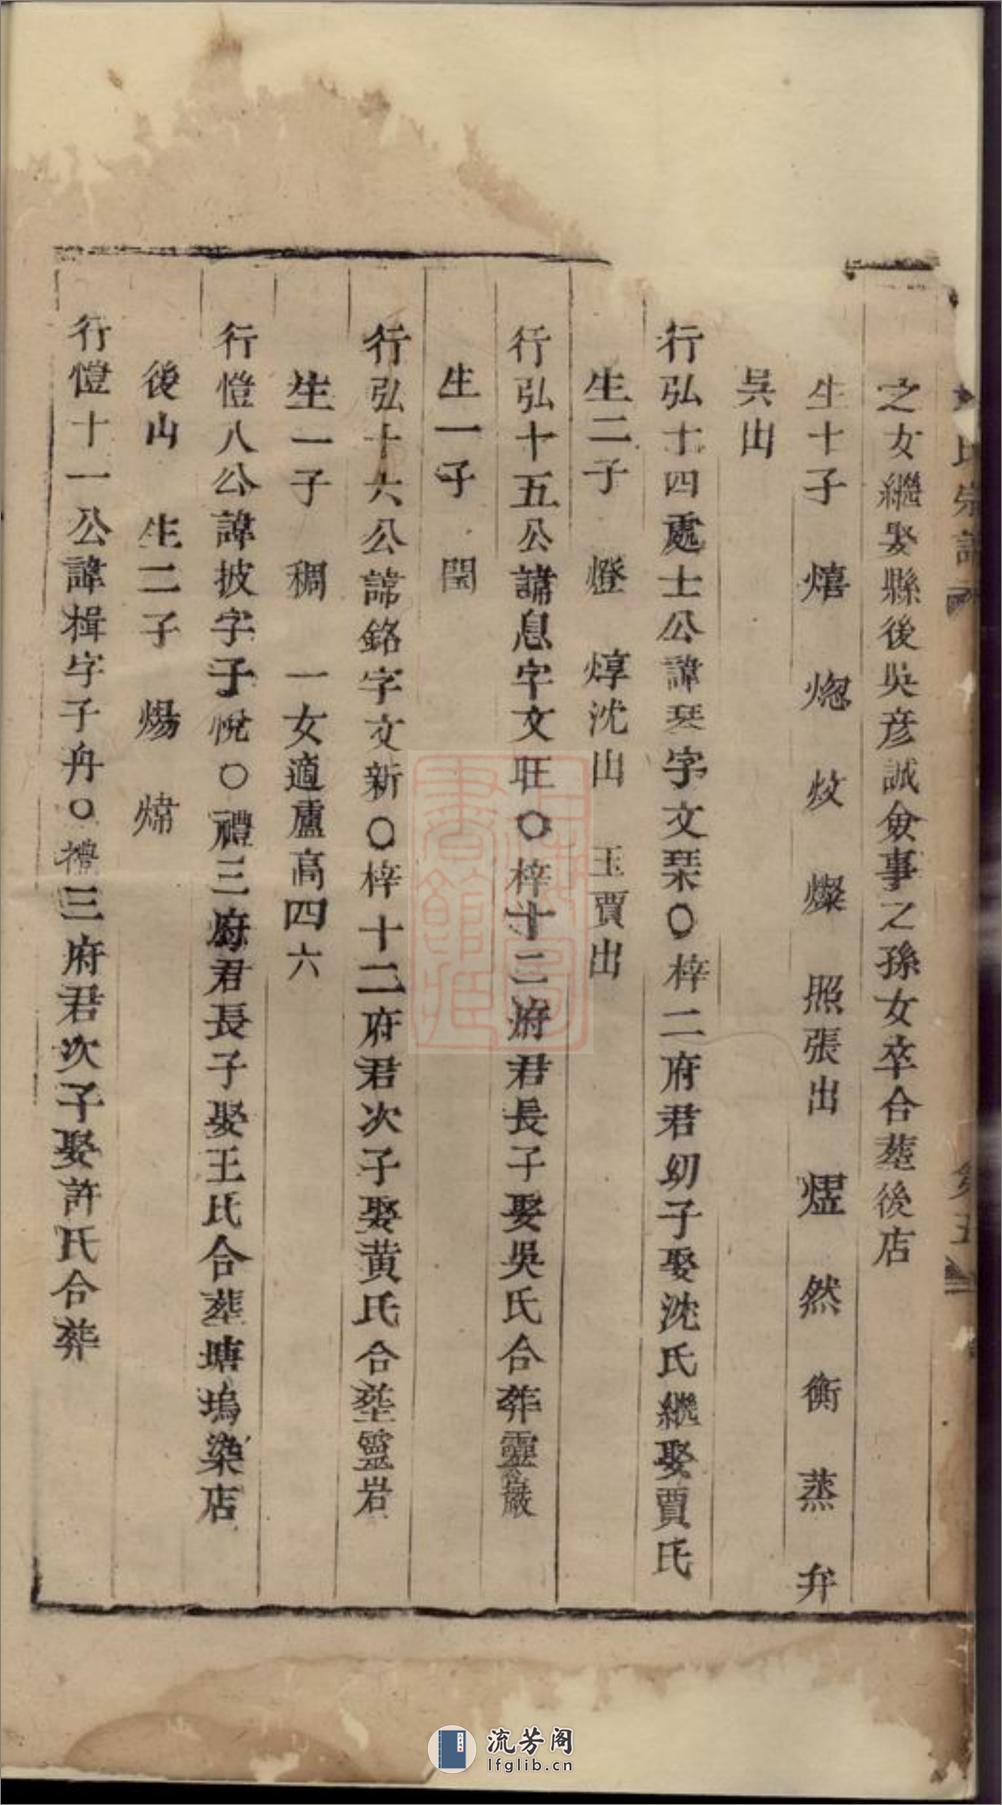 氏宗譜
之女繼娶縣後吳彥誠僉事之孫女卒合塟後店
生十子 熺 焧 炆 燦 照張出 熤 然 衡 蒸 弁
吳出
行弘十四處士公諱琹字文琹○梓二府君幼子娶沈氏繼娶賈氏
生二子 燈 焞沈出 玉賈出
行弘十五公諱息字文旺○梓十二府君長子娶吳氏合葬靈巖
生一子 閏
行弘十六公諱銘字文新○梓十二府君次子娶黃氏合塟靈岩
生一子 稠 一女適盧高四六
行憕八公諱披字子悅○禮三府君長子娶王氏合葬塘塢染店
後山 生二子 煬 煒
行憕十一公諱楫字子舟○禮三府君次子娶許氏合葬
流芳阁
lfglib.cn